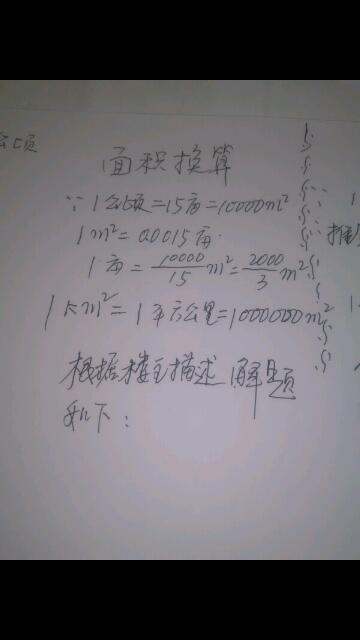 公顷
面积换算
∵1公顷=15亩=10000m²
1m²=0.0015亩.
1亩=10000/15 m²=2000/3 m²
1Km²=1平方公里=1000000m²
根据楼主描述解题
如下: